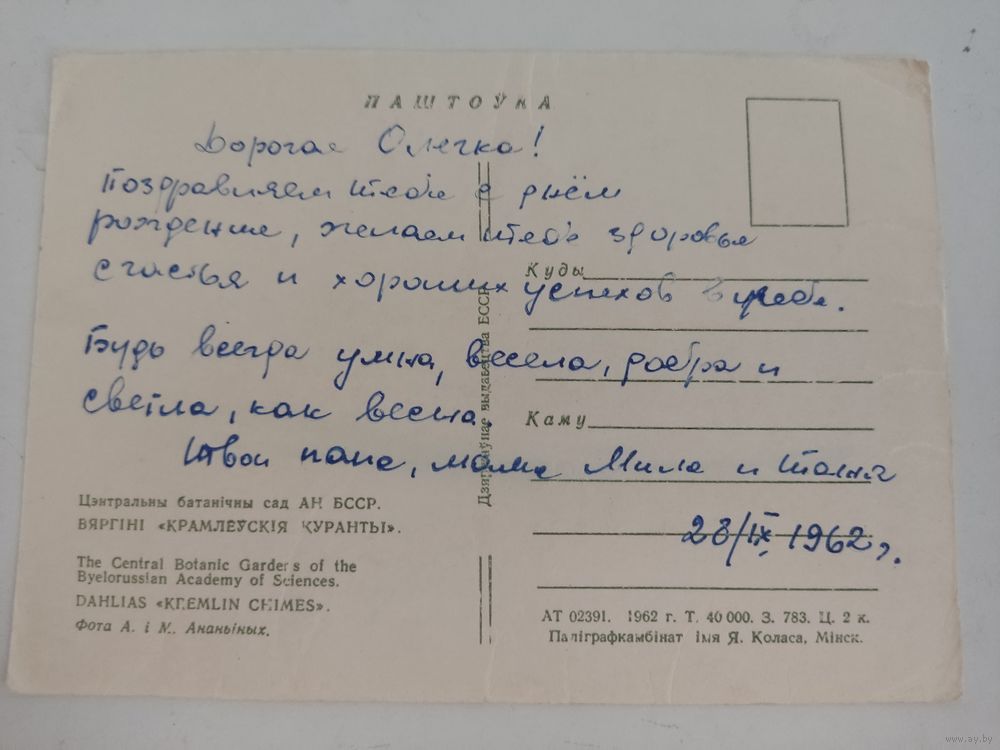 ПАШТОЎКА
Дорогая Олечка!
Поздравляем тебя с днём
рождения, желаем тебе здоровья
счастья и хороших успехов в учебе.
Будь всегда умна, весела, добра и
светла, как весна.
Твои папа, мама Мила и Таня
28/IX, 1962 г.
Куды
Каму
Дзяржаўнае выдавецтва БССР
Цэнтральны батанічны сад АН БССР.
ВЯРГІНІ «КРАМЛЕЎСКІЯ КУРАНТЫ».
The Central Botanic Gardens of the
Byelorussian Academy of Sciences.
DAHLIAS «KREMLIN CHIMES».
Фота А. і М. Ананьіных.
АТ 02391. 1962 г. Т. 40 000. З. 783. Ц. 2 к.
Паліграфкамбінат імя Я. Коласа, Мінск.
www.ay.by